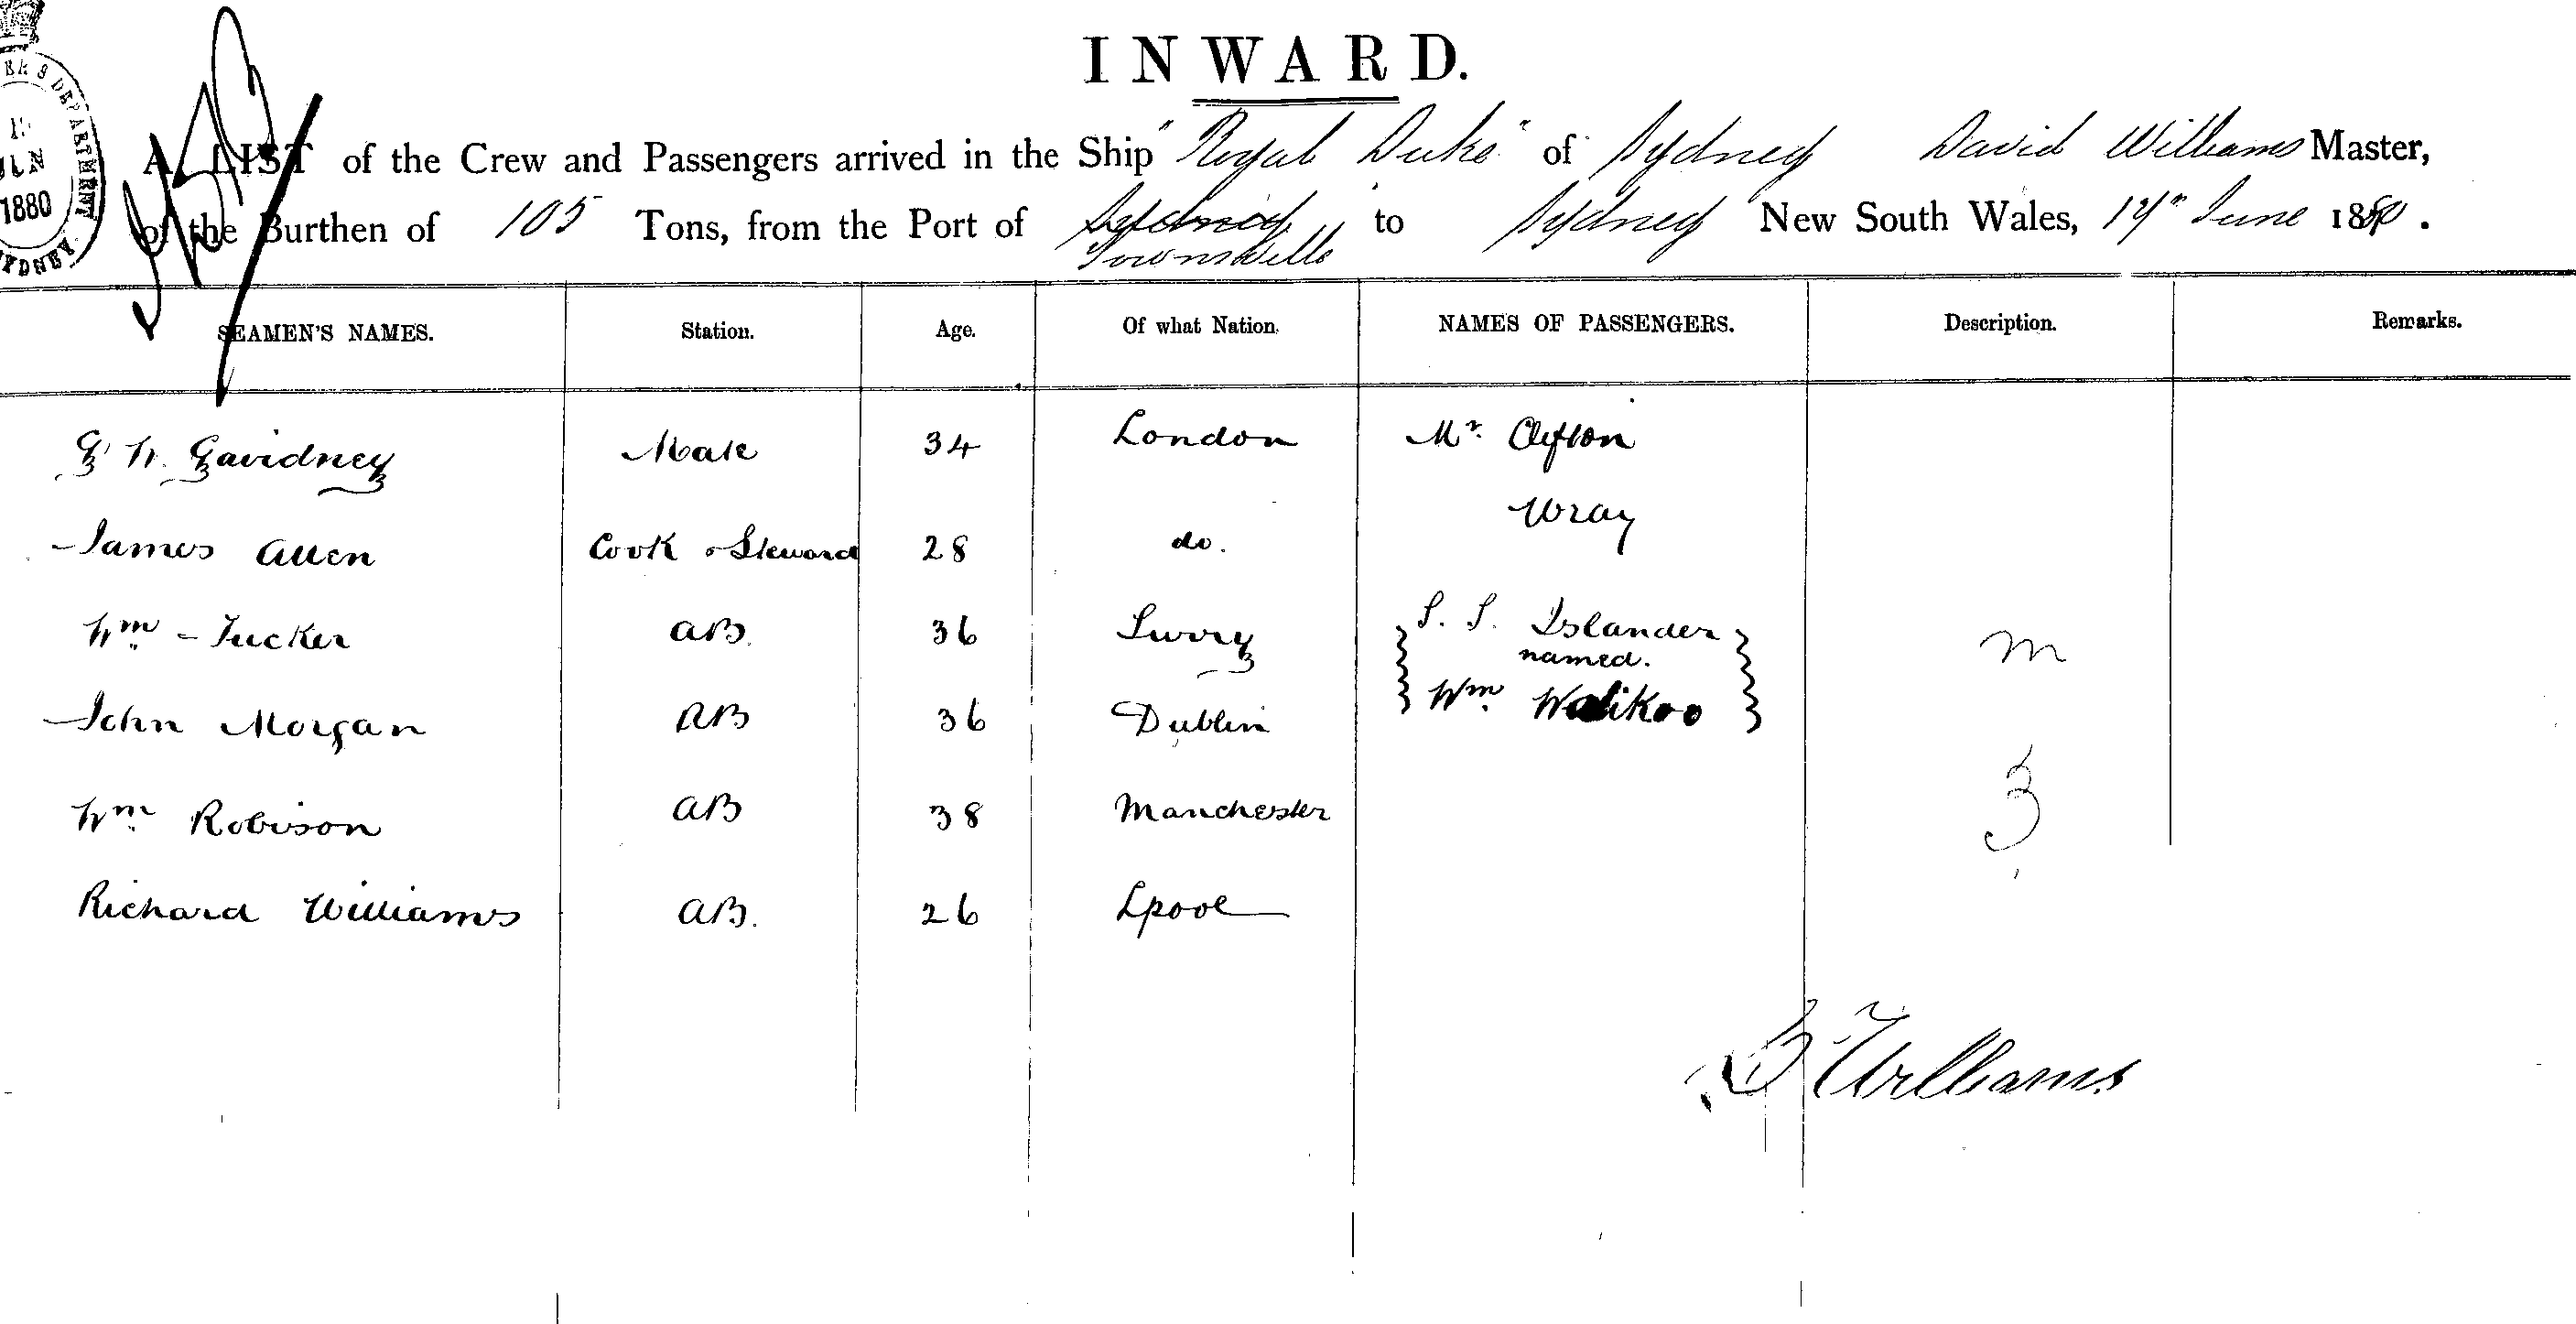 INWARD.
A LIST of the Crew and Passengers arrived in the Ship "Royal Duke" of Sydney David Williams Master,
of the Burthen of 105 Tons, from the Port of Sydney to Sydney New South Wales, June 1880.
Townsville
DEPARTMENT
1880
SYDNEY
SEAMEN'S NAMES. Station. Age. Of what Nation. NAMES OF PASSENGERS. Description. Remarks.
Mate 34 London Mr. Clifton
Wray
James Allen Cook & Steward 28 do.
Wm - Tucker AB. 36 Surry S. S. Islander m
named.
John Morgan AB 36 Dublin Wm. Walikoo
Wm Robison AB 38 Manchester 3
Richard Williams AB. 26 Lpool
D Williams